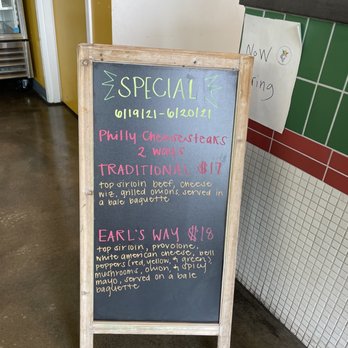 SPECIAL
6/19/21-6/20/21
Philly Cheesesteaks
2 ways
TRADITIONAL $17
top sirloin beef, cheese
wiz, grilled onions, served in
a bale baguette
EARL'S WAY $18
top sirloin, provolone,
white american cheese, bell
peppers (red, yellow, & green),
mushrooms, onion, & spicy
mayo, served on a bale
baguette
NOW
ring